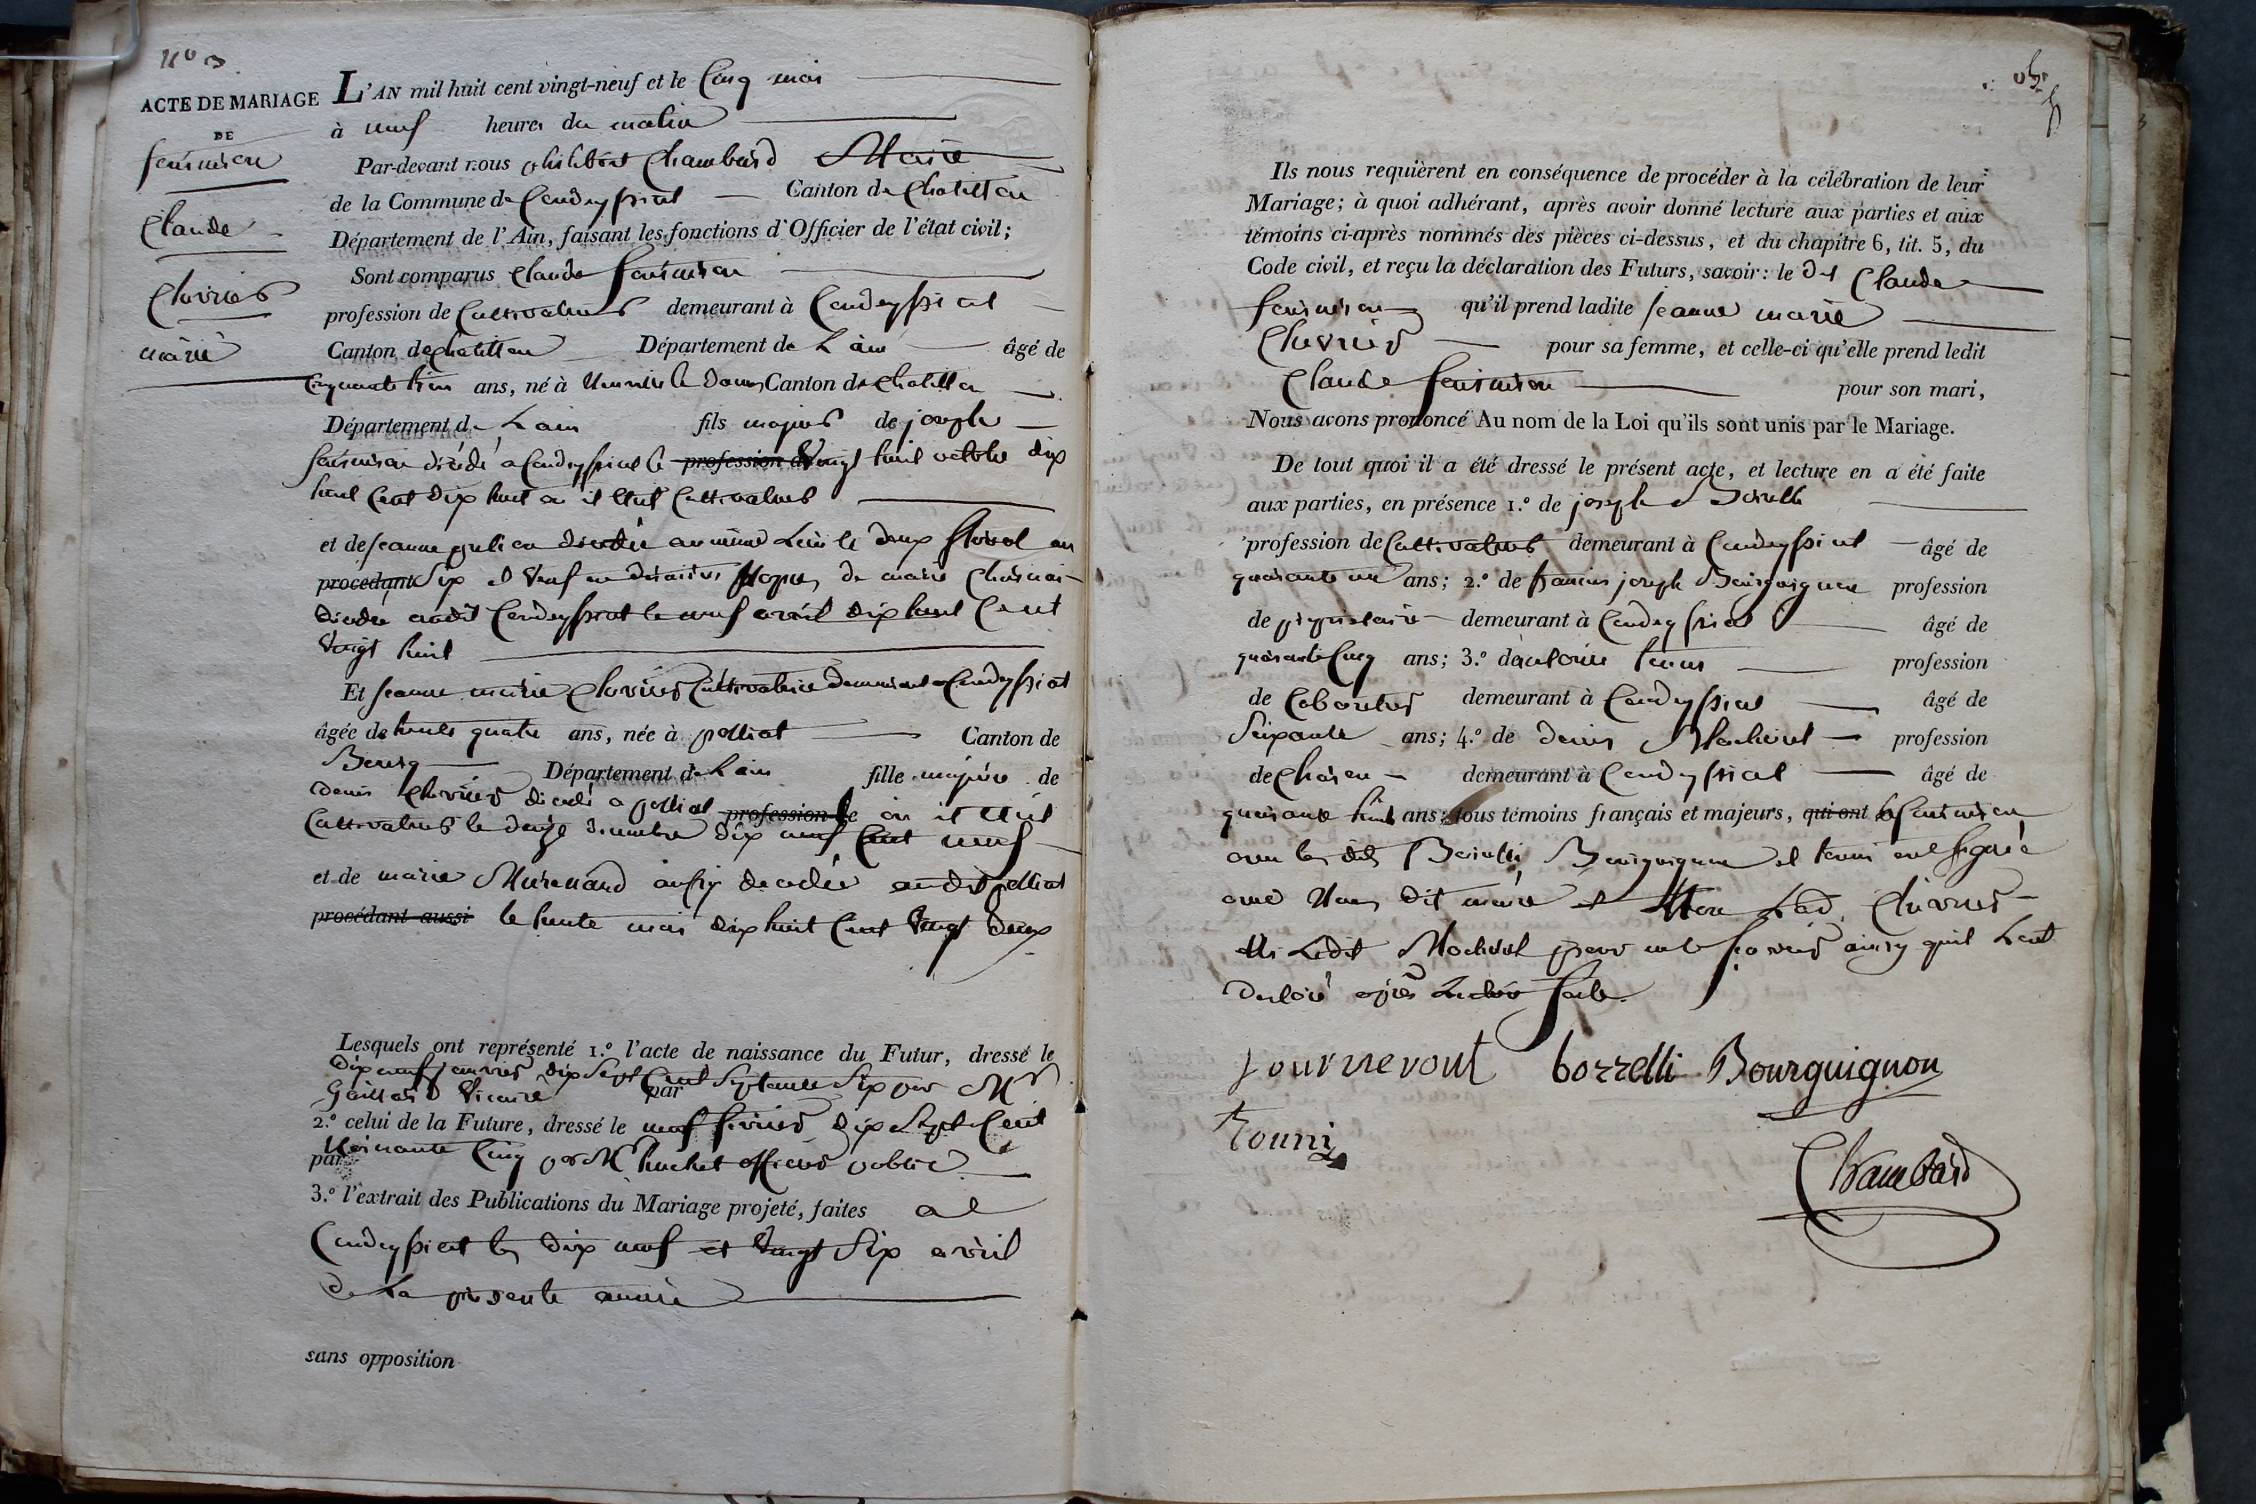 N° 3.
ACTE DE MARIAGE
DE
Claude
Chevrier
marie
L'AN mil huit cent vingt-neuf et le Cinq mai
à neuf heures du matin
Par-devant nous philibert Chambard Maire
de la Commune de Condeyssiat Canton de Chatillon
Département de l'Ain, faisant les fonctions d'Officier de l'état civil;
Sont comparus Claude
profession de Cultivateur demeurant à Condeyssiat
Canton de Chatillon Département de L'ain âgé de
Cinquante trois ans, né à Neuville les Dames Canton de Chatillon
Département de L'ain fils majeur de joseph
décédé a Condeyssiat le profession de vingt huit octobre dix
huit Cent dix huit ou il etait Cultivateur
et de jeanne julien decedée au même Lieu le deux floréal an
procédant Six et Veuf en de marie
decedée audit Condeyssiat le neuf avril dix huit Cent
Vingt huit
Et jeanne marie Chevrier Cultivatrice demeurant a Condeyssiat
âgée de trente quatre ans, née à polliat Canton de
Bourg Département de L'ain fille majeure de
denis Chevrier décédé a polliat profession de ou il etait
Cultivateur le douze dix neuf Cent neuf
et de marie aussy decedée audit polliat
procédant aussi le trente mai dix huit Cent Vingt deux
Lesquels ont représenté 1.° l'acte de naissance du Futur, dressé le
Dix neuf janvier dix Sept Cent Septante Six par Mr
Vicaire par
2.° celui de la Future, dressé le neuf fevrier dix Sept Cent
Nonante Cinq par Mr officier public
par
3.° l'extrait des Publications du Mariage projeté, faites a
Condeyssiat les dix neuf et Vingt Six avril
de La presente année
sans opposition
Ils nous requièrent en conséquence de procéder à la célébration de leur
Mariage; à quoi adhérant, après avoir donné lecture aux parties et aux
témoins ci-après nommés des pièces ci-dessus, et du chapitre 6, tit. 5, du
Code civil, et reçu la déclaration des Futurs, savoir: le dit Claude
qu'il prend ladite jeanne marie
Chevrier pour sa femme, et celle-ci qu'elle prend ledit
Claude pour son mari,
Nous avons prononcé Au nom de la Loi qu'ils sont unis par le Mariage.
De tout quoi il a été dressé le présent acte, et lecture en a été faite
aux parties, en présence 1.° de joseph Borelli
profession de Cultivateur demeurant à Condeyssiat âgé de
quarante un ans; 2.° de francois joseph Bourguignon profession
de propriétaire demeurant à Condeyssiat âgé de
quarante Cinq ans; 3.° de antoine profession
de demeurant à Condeyssiat âgé de
Soixante ans; 4.° de denis profession
de demeurant à Condeyssiat âgé de
quarante huit ans; tous témoins français et majeurs, qui ont
avec les dits Borelli Bourguignon et ont signé
avec Nous dit maire et Non Lad. Chevrier
Ni Ledit pour ne le savoir ainsy quil L'ont
declaré après Lecture faite.
journevout bozzelli Bourguignon
touni
Chambard